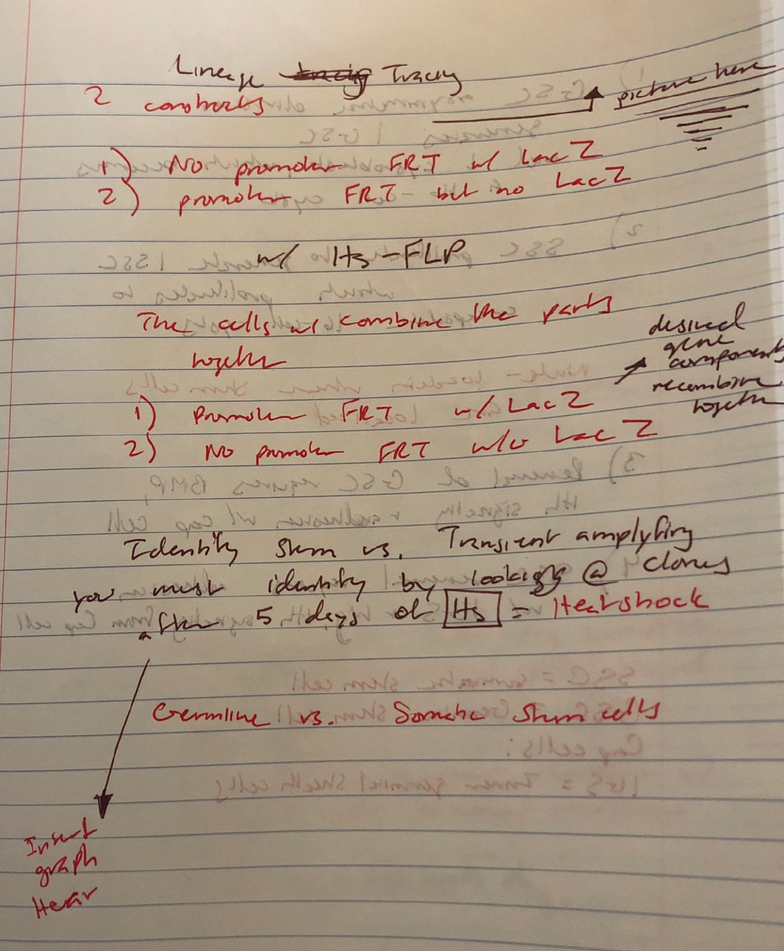 Lineage tracig Tracing
2 constructs
picture here
1) No promoter FRT w/ LacZ
2) promoter FRT but no LacZ
w/ Hs-FLP
The cells w/ combine the parts
together
desired
gene
components
recombine
together
1) Promoter FRT w/ LacZ
2) No promoter FRT w/o LacZ
Identify Stem vs. Transient amplyfing
you must identify by looking @ clones
after 5 days of Hs = Heatshock
Germline vs. Somatic Stem cells
Insert
graph
Hear